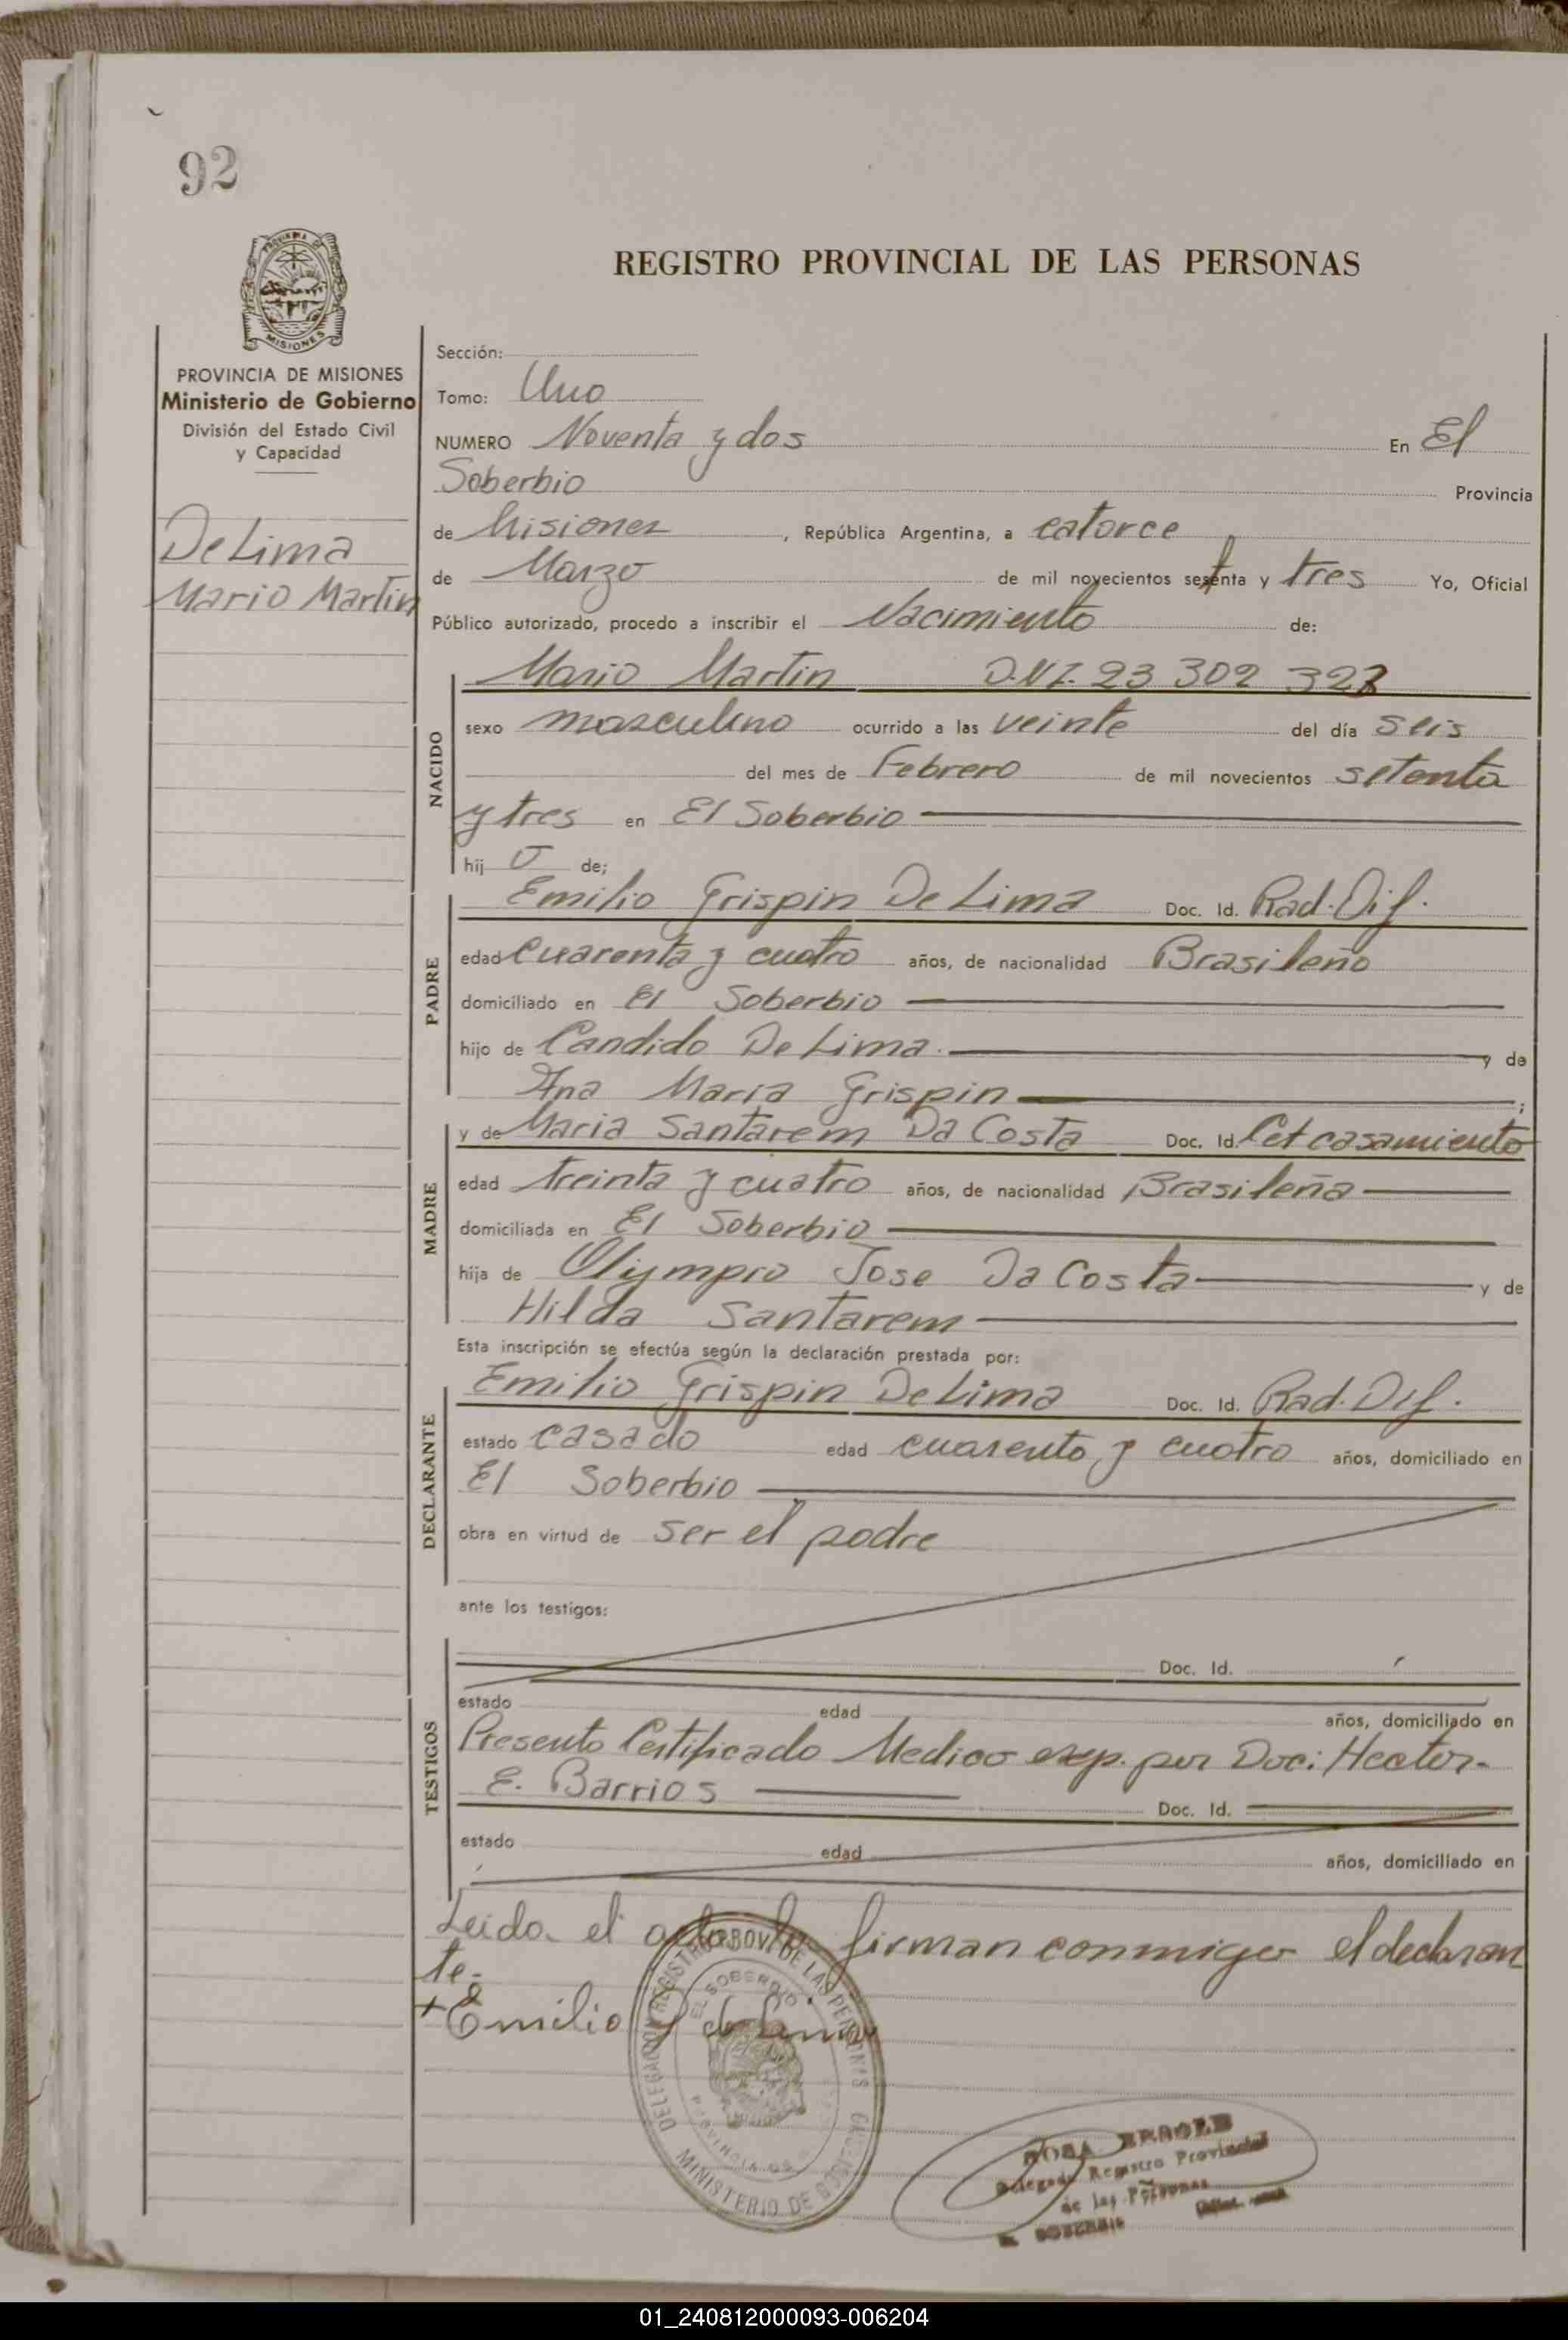 92
PROVINCIA DE MISIONES
Ministerio de Gobierno
División del Estado Civil
y Capacidad
De Lima
Mario Martin
REGISTRO PROVINCIAL DE LAS PERSONAS
Sección:
Tomo: Uno
NUMERO Noventa y dos En El
Soberbio Provincia
de Misiones, República Argentina, a catorce
de Marzo de mil novecientos setenta y tres Yo, Oficial
Público autorizado, procedo a inscribir el Nacimiento de:
NACIDO
Mario Martin D.N.I. 23 302 323
sexo masculino ocurrido a las veinte del día seis
del mes de Febrero de mil novecientos setenta
y tres en El Soberbio
hij o de;
PADRE
Emilio Grispin De Lima Doc. Id. Rad. Dif.
edad cuarenta y cuatro años, de nacionalidad Brasileño
domiciliado en El Soberbio
hijo de Candido De Lima. y de
Ana Maria Grispin;
MADRE
y de Maria Santarem Da Costa Doc. Id. Cet casamiento
edad treinta y cuatro años, de nacionalidad Brasileña
domiciliada en El Soberbio
hija de Olympio Jose Da Costa y de
Hilda Santarem
Esta inscripción se efectúa según la declaración prestada por:
DECLARANTE
Emilio Grispin De Lima Doc. Id. Rad. Dif.
estado casado edad cuarenta y cuatro años, domiciliado en
El Soberbio
obra en virtud de ser el padre
ante los testigos:
TESTIGOS
Doc. Id.
estado edad años, domiciliado en
Presento Certificado Medico exp. por Doc: Hector-
E. Barrios Doc. Id.
estado edad años, domiciliado en
Leido el acta la firman conmigo el declaran
te-
+ Emilio G de Lima
DELEGACION REGISTRO PROV. DE LAS PERSONAS
EL SOBERBIO
PROVINCIA DE
MINISTERIO DE GOBIERNO
ROSA
Delegada Registro Provincial
de las Personas
SOBERBIO
01_240812000093-006204